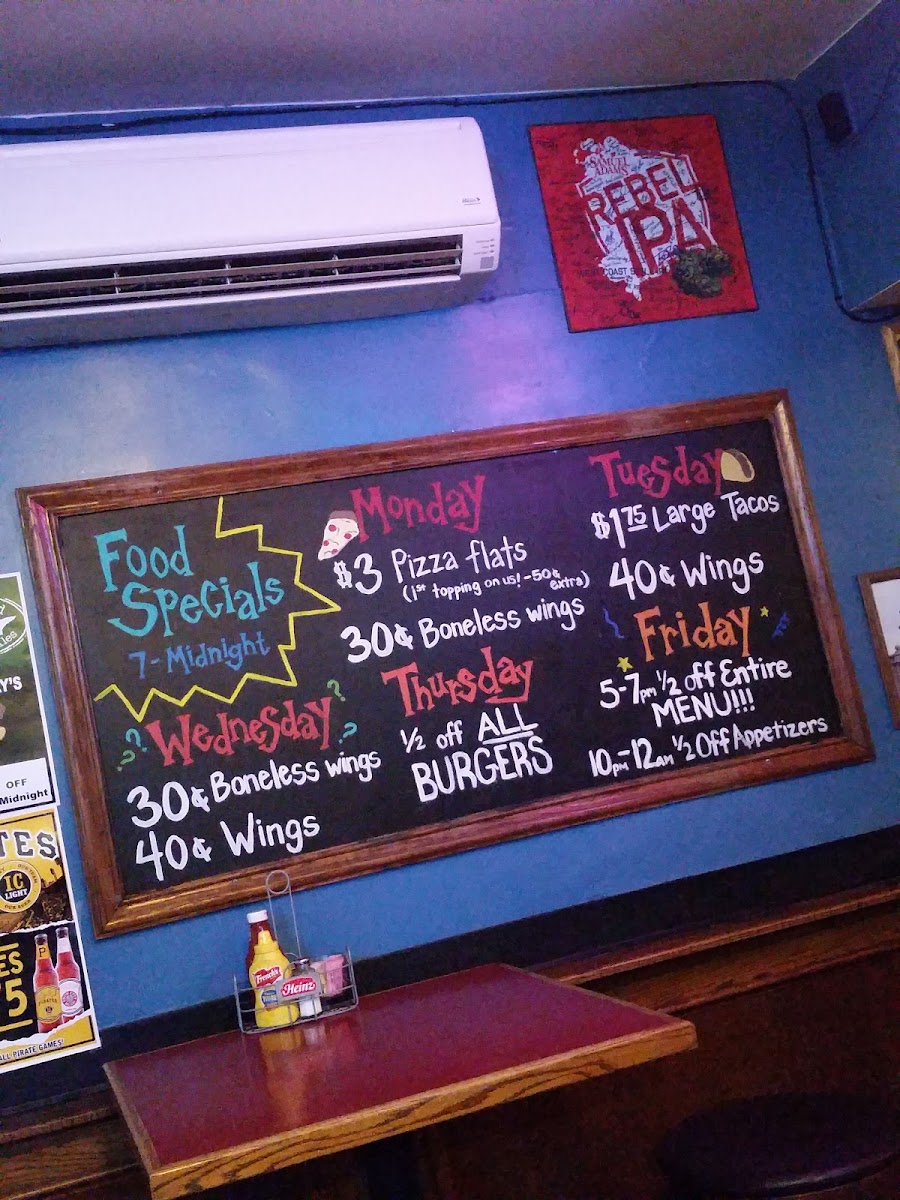 SAMUEL ADAMS
REBEL
IPA
Food
Specials
7-Midnight
Monday
$3 Pizza flats
(1st topping on us! -50¢ extra)
30¢ Boneless wings
Tuesday
$1 75 Large Tacos
40¢ Wings
Wednesday
30¢ Boneless wings
40¢ Wings
Thursday
1/2 off ALL
BURGERS
Friday
5-7pm 1/2 off Entire
MENU!!!
10pm-12am 1/2 Off Appetizers
OFF
Midnight
IC
LIGHT
ALL PIRATE GAMES!
French's
Heinz